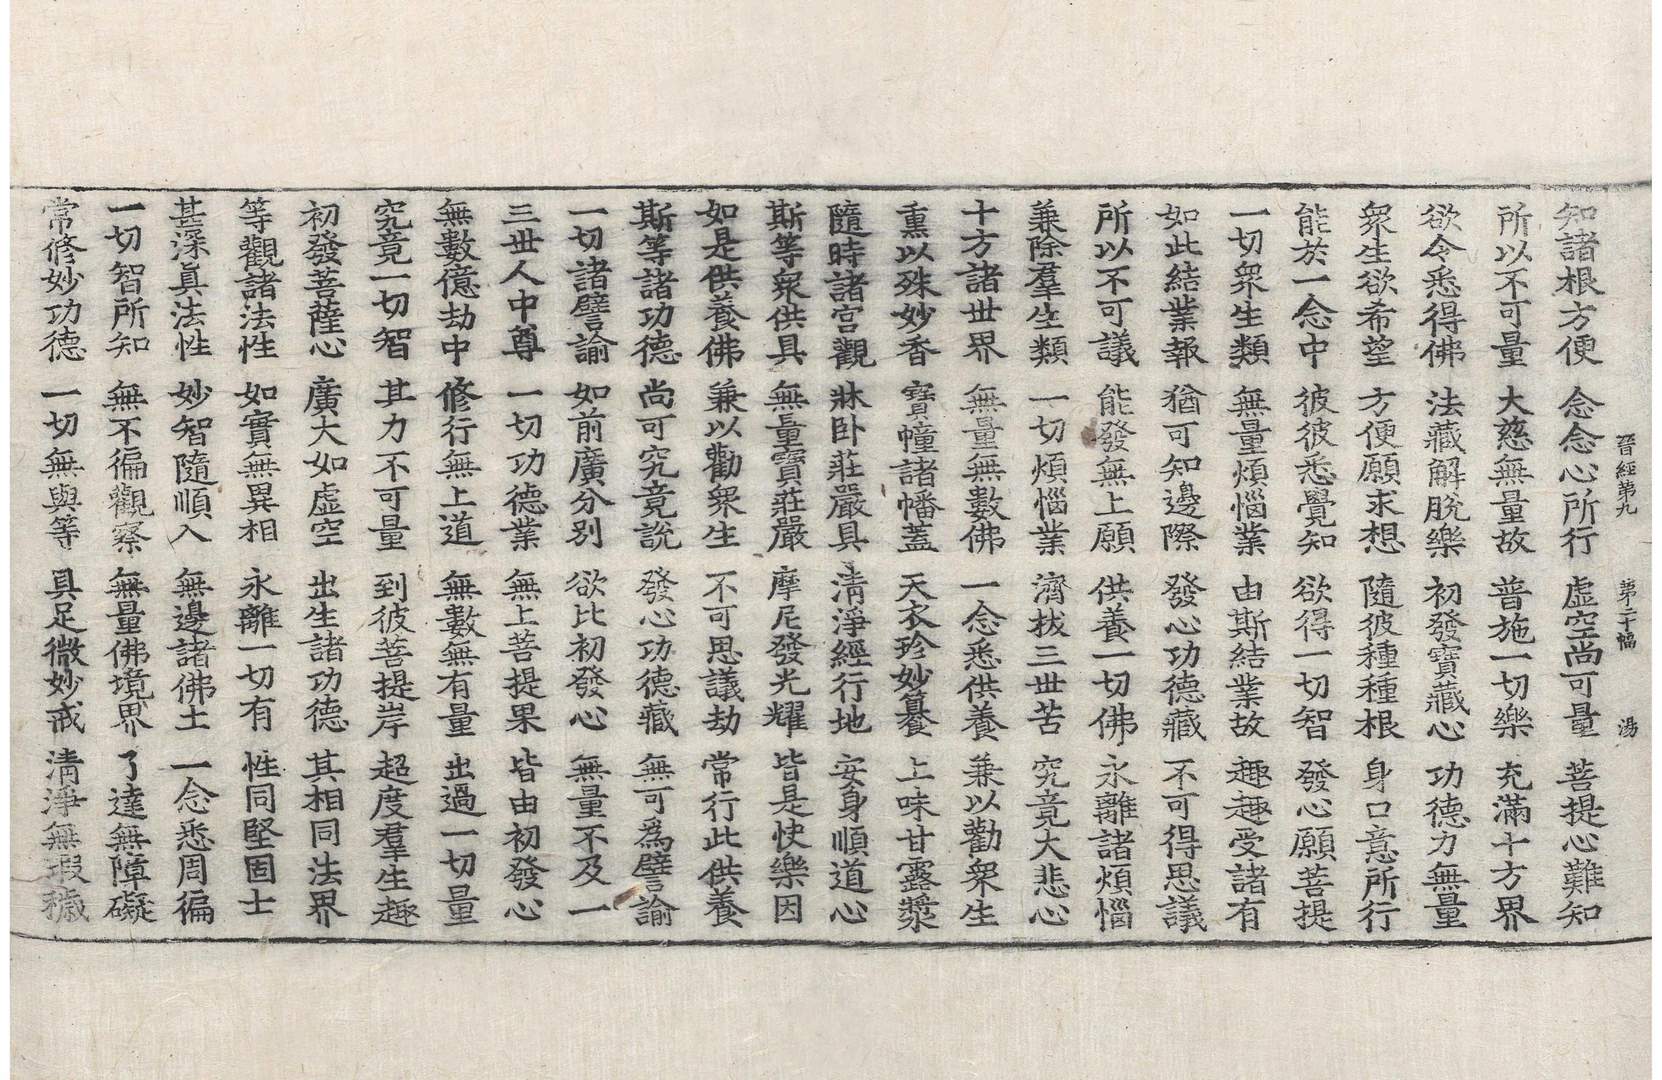 晉經第九　第二十幅　湯
知諸根方便　念念心所行　虛空尚可量　菩提心難知
所以不可量　大慈無量故　普施一切樂　充滿十方界
欲令悉得佛　法藏解脫樂　初發寶藏心　功德力無量
衆生欲希望　方便願求想　隨彼種種根　身口意所行
能於一念中　彼彼悉覺知　欲得一切智　發心願菩提
一切衆生類　無量煩惱業　由斯結業故　趣趣受諸有
如此結業報　猶可知邊際　發心功德藏　不可得思議
所以不可議　能發無上願　供養一切佛　永離諸煩惱
兼除羣生類　一切煩惱業　濟拔三世苦　究竟大悲心
十方諸世界　無量無數佛　一念悉供養　兼以勸衆生
熏以殊妙香　寶幢諸幡蓋　天衣珍妙饌　上味甘露漿
隨時諸宮觀　牀卧莊嚴具　清淨經行地　安身順道心
斯等衆供具　無量寶莊嚴　摩尼發光耀　皆是快樂因
如是供養佛　兼以勸衆生　不可思議劫　常行此供養
斯等諸功德　尚可究竟說　發心功德藏　無可爲譬諭
一切諸譬諭　如前廣分別　欲比初發心　無量不及一
三世人中尊　一切功德業　無上菩提果　皆由初發心
無數億劫中　修行無上道　無數無有量　出過一切量
究竟一切智　其力不可量　到彼菩提岸　超度羣生趣
初發菩薩心　廣大如虛空　出生諸功德　其相同法界
等觀諸法性　如實無異相　永離一切有　性同堅固士
甚深眞法性　妙智隨順入　無邊諸佛土　一念悉周徧
一切智所知　無不徧觀察　無量佛境界　了達無障礙
常修妙功德　一切無與等　具足微妙戒　清淨無瑕穢